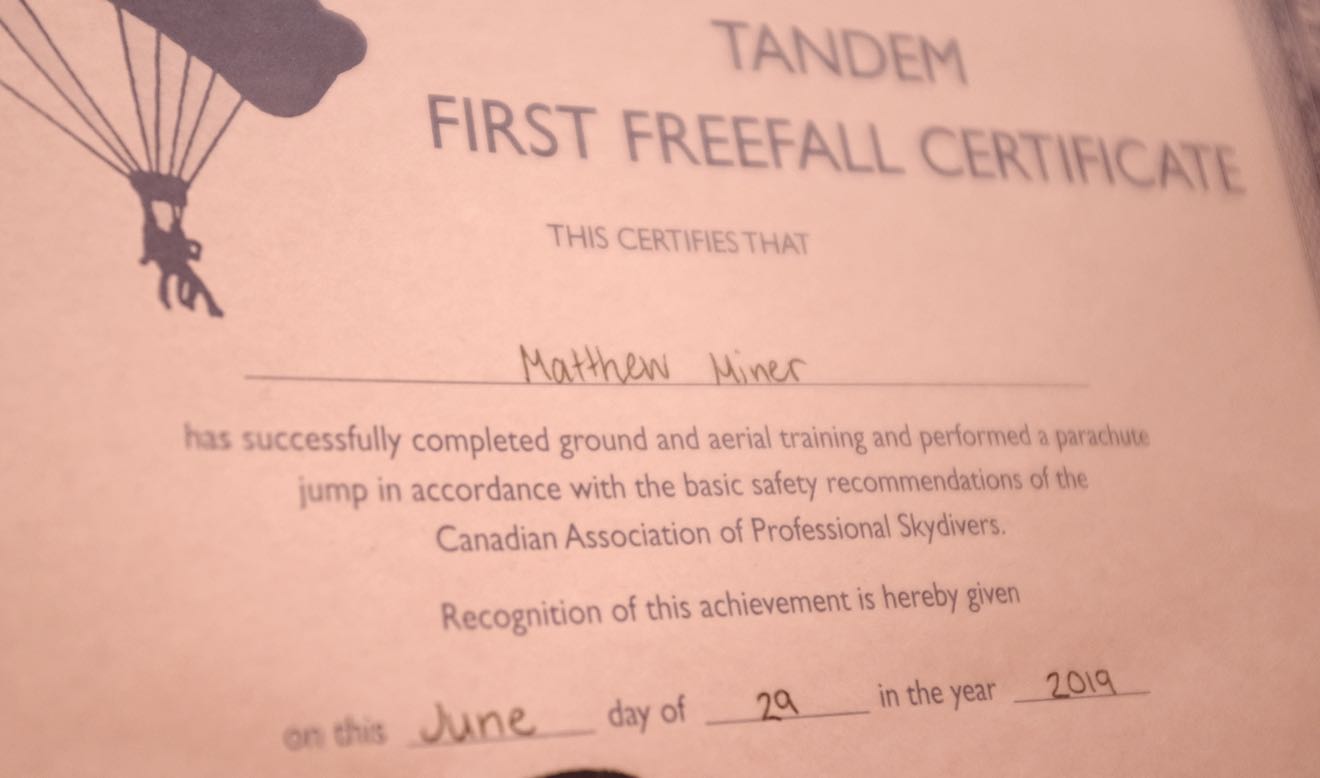 TANDEM
FIRST FREEFALL CERTIFICATE
THIS CERTIFIES THAT
Matthew Miner
has successfully completed ground and aerial training and performed a parachute
jump in accordance with the basic safety recommendations of the
Canadian Association of Professional Skydivers.
Recognition of this achievement is hereby given
on this June day of 29 in the year 2019